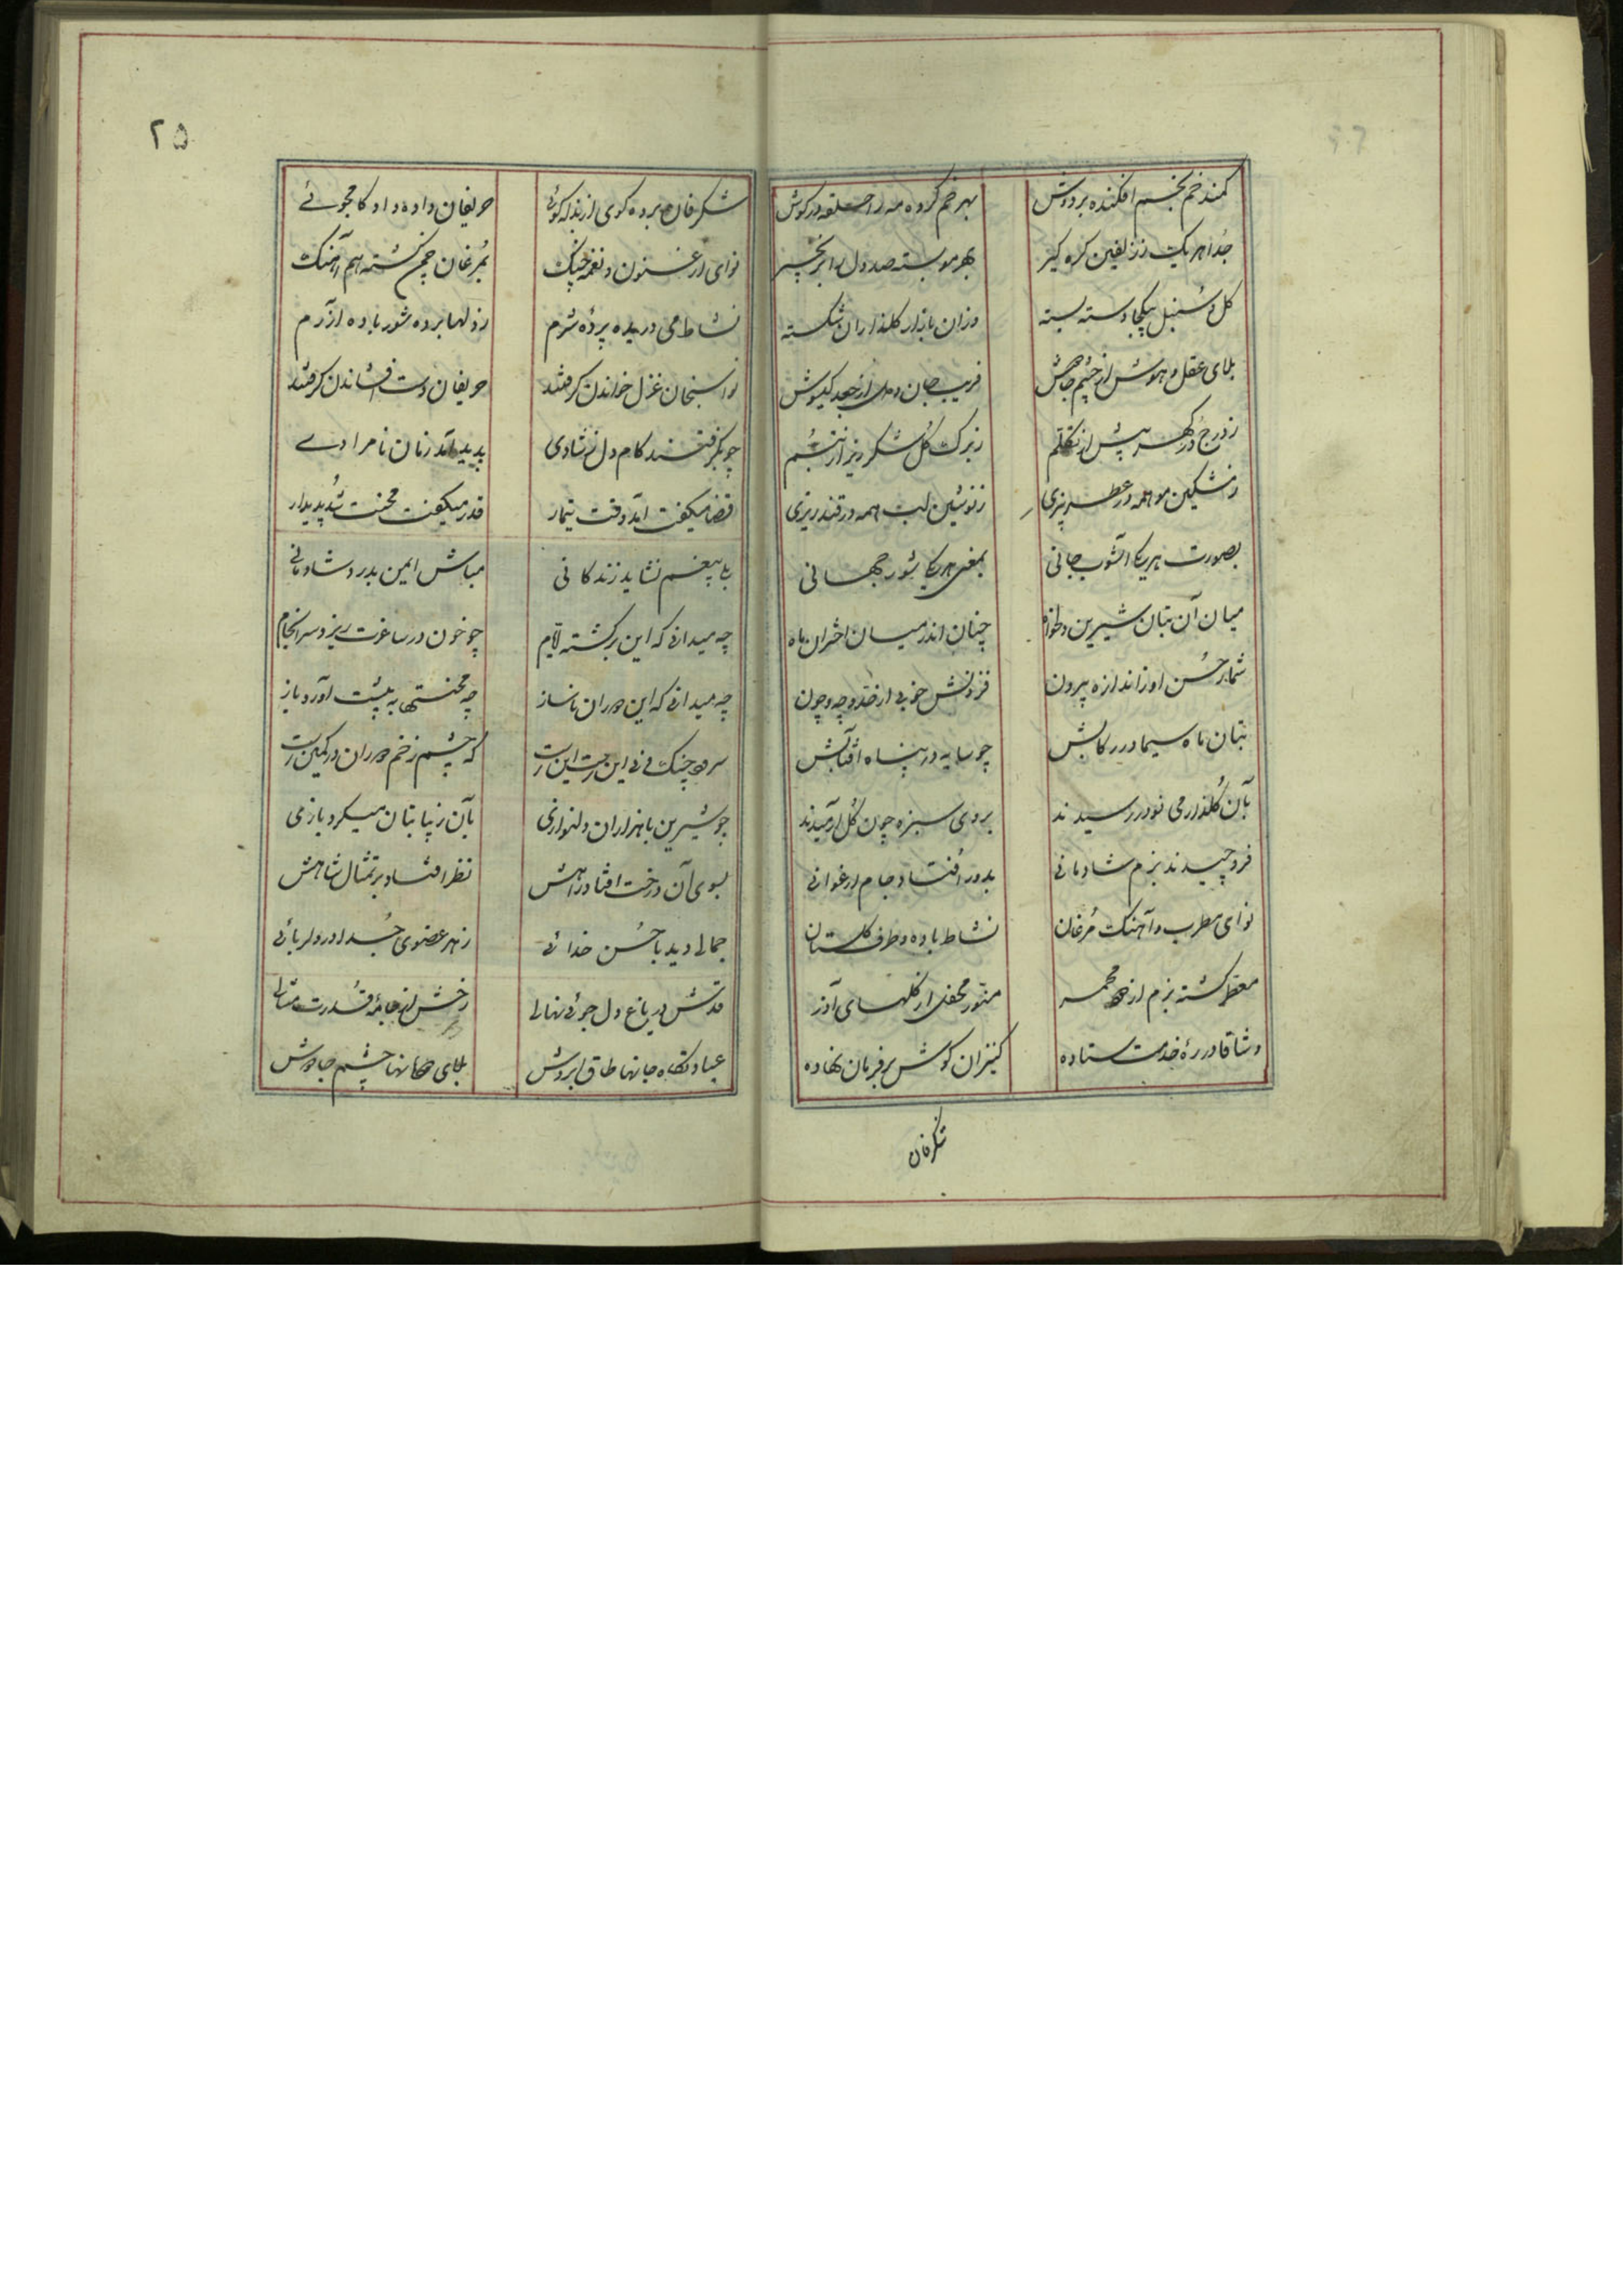 کمند خم بخم افکنده بر دوش بهر خم کرده مه را حلقه در کوش
جدا هر یک ز زلفین کره کیر بهر مو بسته صد دل را بزنجیر
کل و سنبل بیکجا دسته بسته وزان بازار کلعذاران شکسته
بلای عقل و هوش از چشم جادوش فریب جان و دل از جعد کیسوش
ز درج در کهر پیش از تکلم ز برک کل شکر ریز از تبسم
ز مشکین مو همه در عطر بیزی ز نوشین لب همه در قند ریزی
بصورت هر یکی آشوب جانی بمعنی هر یکی شور جهانی
میان آن بتان شیرین دلخواه چنان اندر میان اختران ماه
شمار حسن او ز اندازه بیرون فزونش خوبی از حد و چه و چون
بتان ماه سیما در رکابش چو سایه در پناه آفتابش
بآن کلعذار می نو در رسیدند بروی سبزه چون کل آرمیدند
فرو چیدند بزم شادمانی بدور افتاد جام ارغوانی
نوای مطرب و آهنک مرغان نشاط باده و طرف کلستان
معطر کشته بزم از مجمر منور محفل از کلهای آذر
وشاقان در ره خدمت ستاده کنیزان کوش بر فرمان نهاده
شکرفان
۲۵
شکرفان برده کوی از بذله کوئی حریفان داده داد کامجوئی
نوای ارغنون و نغمه چنک بمرغان چمن کشته هم آهنک
نشاط می دریده پرده شرم ز دلها برده شور باده آزرم
نواسنجان غزل خواندن کرفتند حریفان دست افشاندن کرفتند
چو بکرفتند کام دل ز شادی پدید آمد زمان نامرادی
قضا میکفت آمد وقت تیمار قدر میکفت محنت شد پدیدار
بلی بیغم نشاید زندکانی مباش ایمن بدور شادمانی
چه میدانی که این برکشته ایام چو خون در ساغرت ریزد سرانجام
چه میدانی که این دوران ناساز چه محنتها به پیشت آورد باز
سرود چنک و نی این است این است که چشم زخم دوران در کمین است
چو شیرین با هزاران دلنوازی بآن زیبا بتان میکرد بازی
بسوی آن درخت افتاد راهش نظر افتاد بر تمثال شاهش
جمالی دید با حسن خدائی ز هر عضوی جدا در دلربائی
قدش در باغ دل جوئی نهالی رخش از خامه قدرت مثالی
عبادتکاه جانها طاق ابروش بلای جانها چشم جادوش